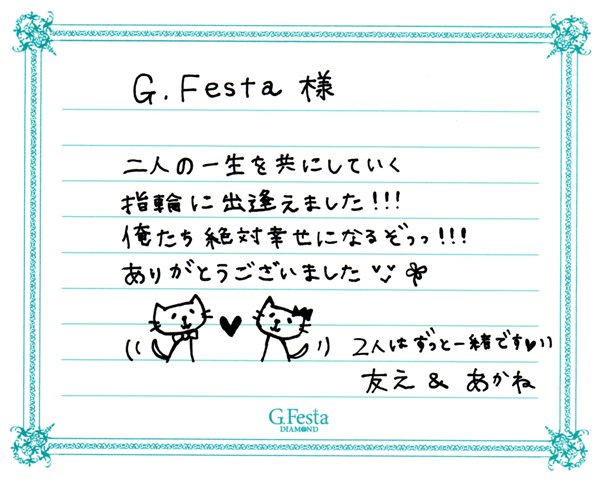 G.Festa 様
二人の一生を共にしていく
指輪に出逢えました!!!
俺たち絶対幸せになるぞっっ!!!
ありがとうございました
♥
2人はずっと一緒です♥))
友え & あかね
G.Festa
DIAMOND